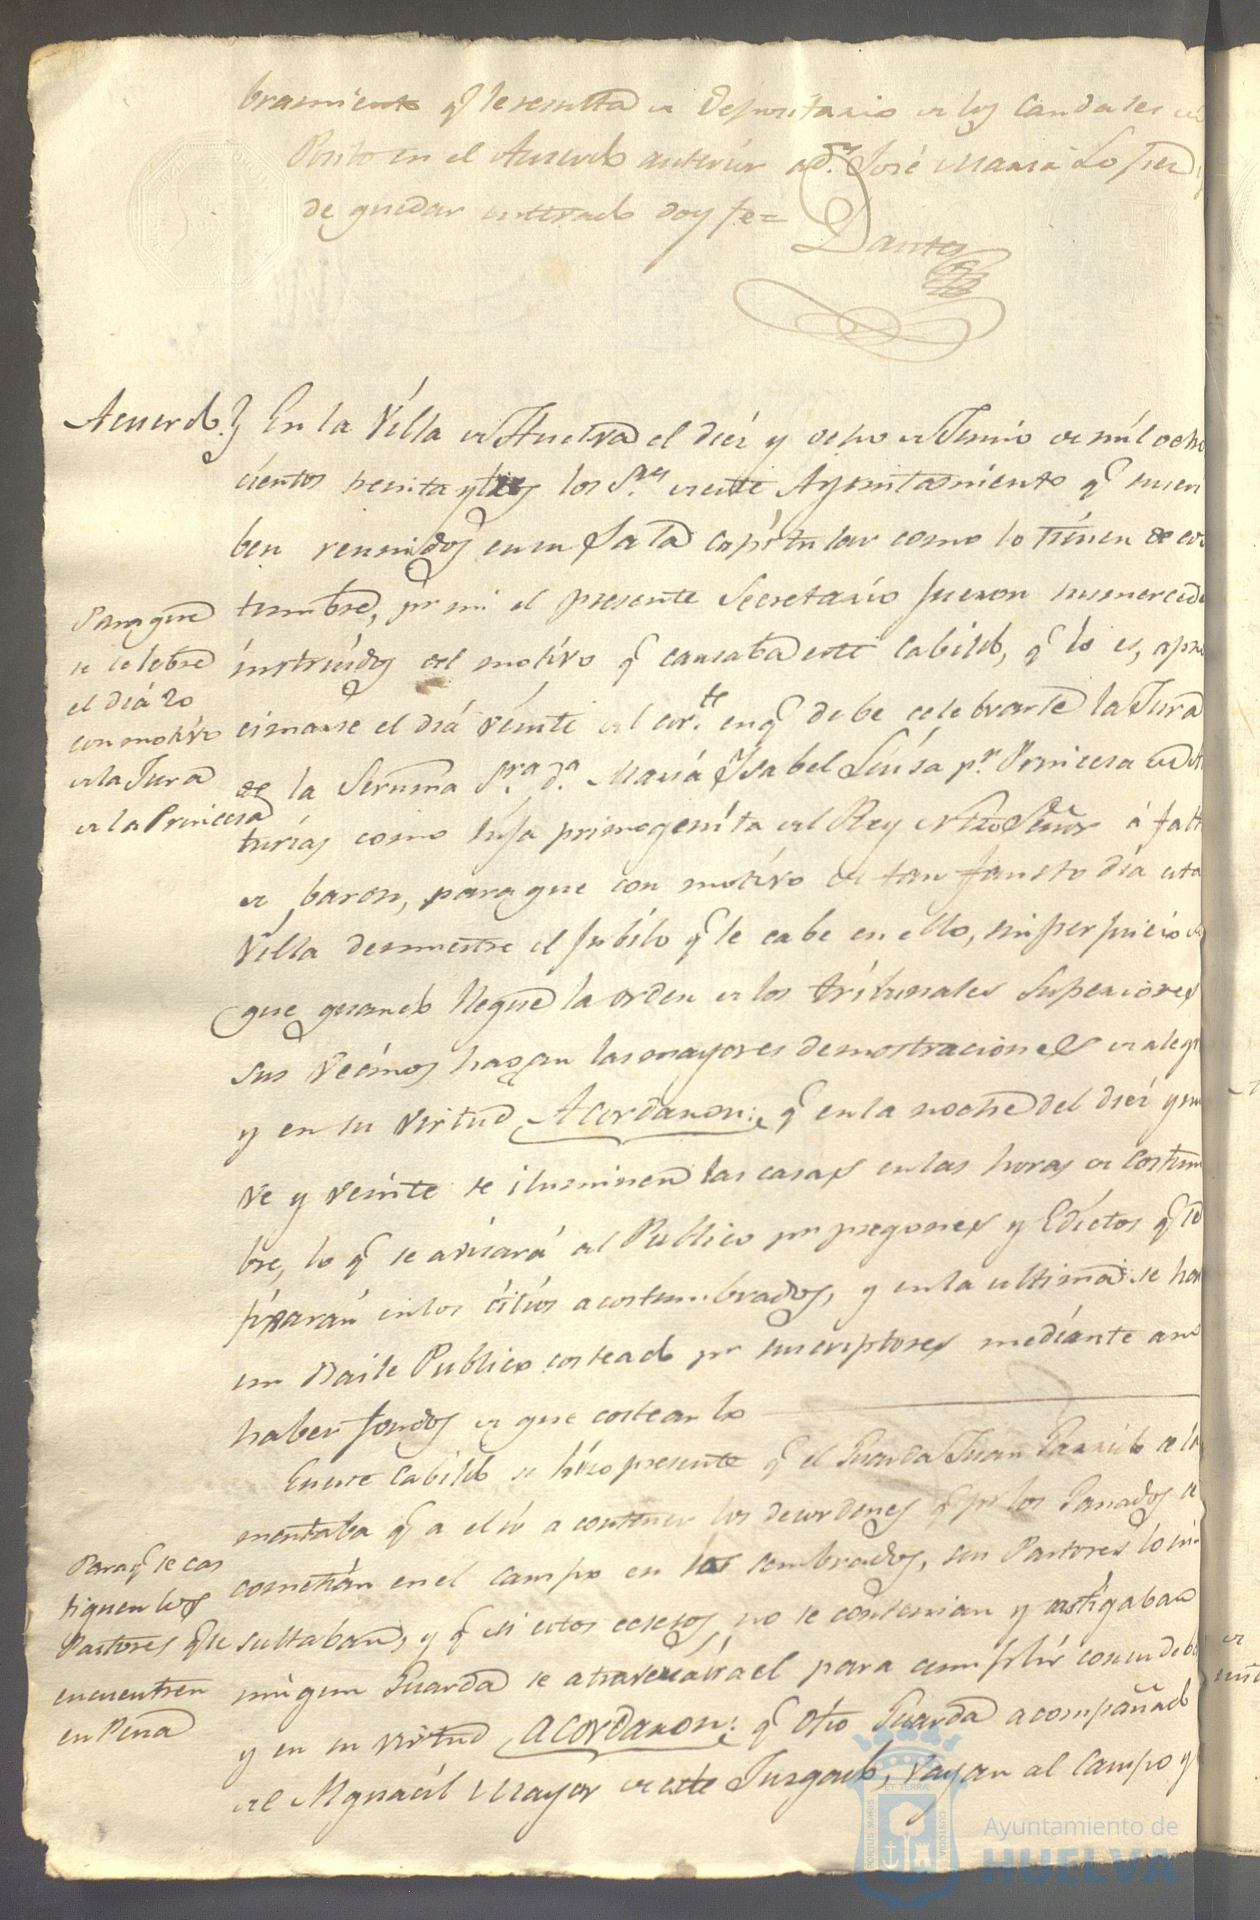 bramiento q.e le resulta de Depositario de los Caudales del
Posito en el Acuerdo anterior a d.n José Maria Lopez
de quedar enterado doy fe=
Dantes
Acuerdo.} En la Villa de Huelva el diez y ocho de Junio de mil ocho
cientos treinta y tres los S.res de este Ayuntamiento q.e suscri
ben reunidos en su Sala capitular como lo tienen de cos
tumbre, p.r mi el presente Secretario fueron sus mercedes
instruidos del motivo q.e causaba este Cabildo, q.e lo es, apro
cimarse el dia veinte del cor.te en q.e debe celebrarse la Jura
de la Serma S.ra d.a Maria Ysabel Luisa p.r Princesa de As
turias como hija primogenita del Rey Ntro Señor á falta
de baron, para que con motivo de tan fausto dia esta
Villa demuestre el jubilo q.e le cabe en ello, sin perjuicio de
que quando llegue la orden de los tribunales Superiores
sus vecinos hagan las mayores demostraciones de alegr
y en su virtud Acordaron: q.e en la noche del diez y nue
ve y veinte se iluminen las casas en las horas de costum
bre, lo q.e se avisará al Publico p.r pregones y Edictos q.e se
fixarán en los citios acostumbrados, y en la ultima se hará
un Baile Publico costeado p.r suscriptores mediante a no
haber fondos de que costearlo
Para que
se celebre
el dia 20
con motivo
de la Jura
de la Princesa
En este Cabildo se hizo presente q.e el Guarda Juan Garrido se la
mentaba q.e a el ir a contener los desordenes q.e p.r los Ganados se
cometian en el campo en los sembrados, sus Pastores lo in
sultaban, y q.e si estos ecsesos no se contenian y castigaban
ningun Guarda se atraveria a el para cumplir con su debe
y en su virtud acordaron: q.e otro Guarda acompañado
del Alguacil Mayor de este Juzgado, vayan al Campo y
Para q.e se cas
tiguen los
Pastores q.e se
encuentren
en Pena
Ayuntamiento de
HUELVA